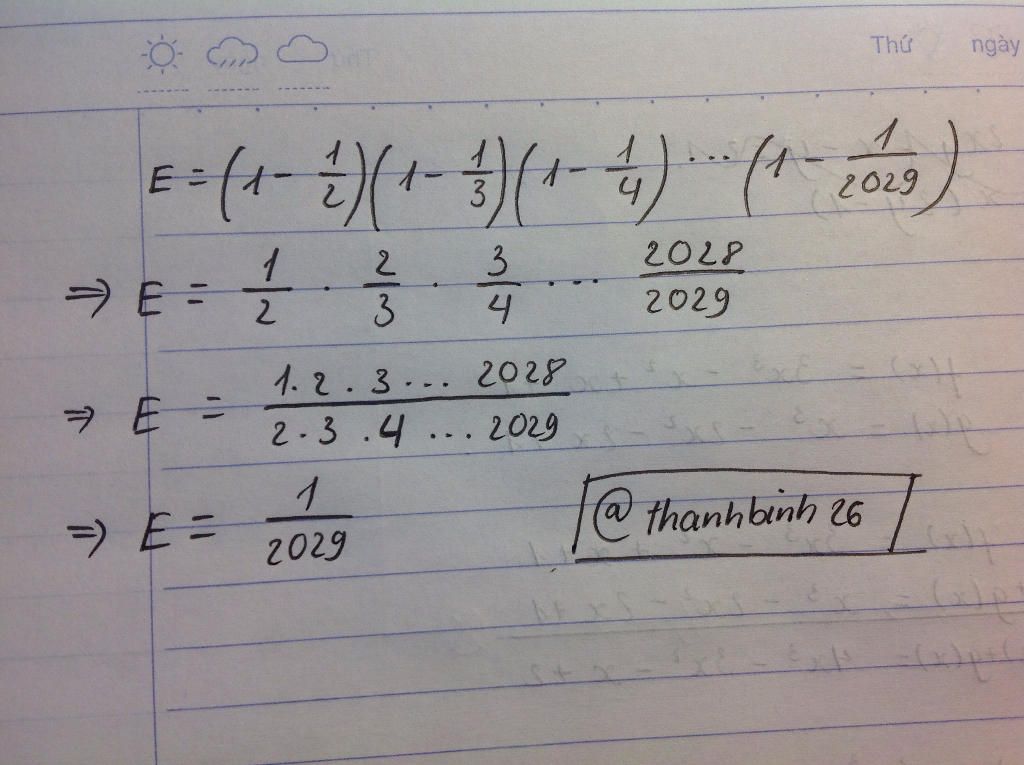 Thứ ngày
E = (1 - 1/2)(1 - 1/3)(1 - 1/4) ... (1 - 1/2029)
⇒ E = 1/2 . 2/3 . 3/4 ... 2028/2029
⇒ E = (1.2.3... 2028)/(2.3.4...2029)
⇒ E = 1/2029
@thanhbinh26